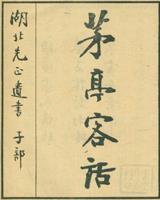 茅亭客話
湖北先正遺書 子部